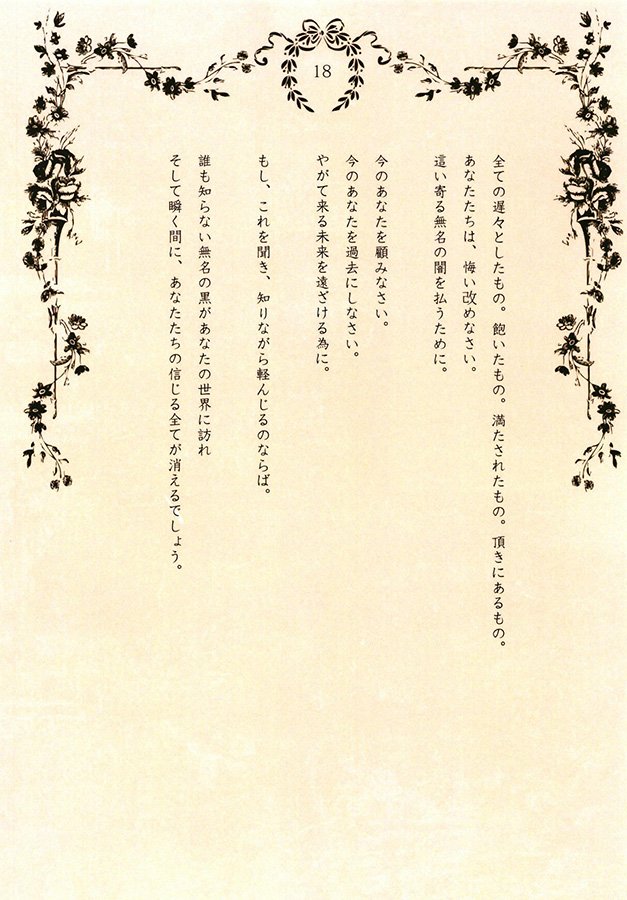 18
全ての遅々としたもの。飽いたもの。満たされたもの。頂きにあるもの。
あなたたちは、悔い改めなさい。
這い寄る無名の闇を払うために。
今のあなたを顧みなさい。
今のあなたを過去にしなさい。
やがて来る未来を遠ざける為に。
もし、これを聞き、知りながら軽んじるのならば。
誰も知らない無名の黒があなたの世界に訪れ
そして瞬く間に、あなたたちの信じる全てが消えるでしょう。